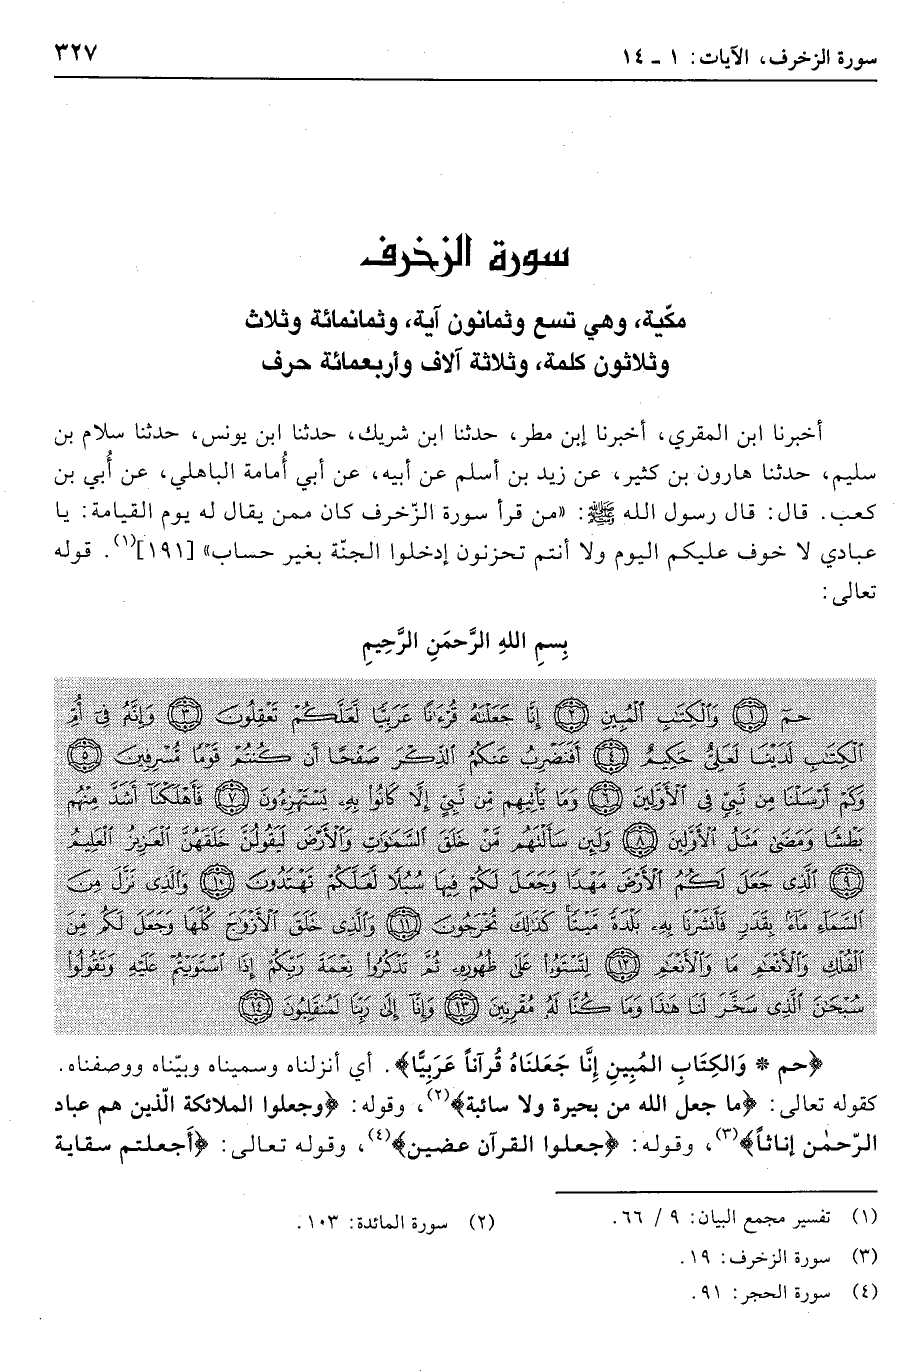 سورة الزخرف، الآيات: ١ ـ ١٤
٣٢٧
سورة الزخرف
مكّية، وهي تسع وثمانون آية، وثمانمائة وثلاث
وثلاثون كلمة، وثلاثة آلاف وأربعمائة حرف
أخبرنا ابن المقري، أخبرنا إبن مطر، حدثنا ابن شريك، حدثنا ابن يونس، حدثنا سلام بن
سليم، حدثنا هارون بن كثير، عن زيد بن أسلم عن أبيه، عن أبي أُمامة الباهلي، عن أُبي بن
كعب. قال: قال رسول الله ﷺ: «من قرأ سورة الزّخرف كان ممن يقال له يوم القيامة: يا
عبادي لا خوف عليكم اليوم ولا أنتم تحزنون إدخلوا الجنّة بغير حساب» [١٩١](١). قوله
تعالى:
بِسمِ اللهِ الرَّحمَنِ الرَّحِيمِ
حمٓ ﴿١﴾ وَٱلْكِتَٰبِ ٱلْمُبِينِ ﴿٢﴾ إِنَّا جَعَلْنَٰهُ قُرْءَٰنًا عَرَبِيًّا لَّعَلَّكُمْ تَعْقِلُونَ ﴿٣﴾ وَإِنَّهُۥ فِىٓ أُمِّ
ٱلْكِتَٰبِ لَدَيْنَا لَعَلِىٌّ حَكِيمٌ ﴿٤﴾ أَفَنَضْرِبُ عَنكُمُ ٱلذِّكْرَ صَفْحًا أَن كُنتُمْ قَوْمًا مُّسْرِفِينَ ﴿٥﴾
وَكَمْ أَرْسَلْنَا مِن نَّبِىٍّ فِى ٱلْأَوَّلِينَ ﴿٦﴾ وَمَا يَأْتِيهِم مِّن نَّبِىٍّ إِلَّا كَانُوا۟ بِهِۦ يَسْتَهْزِءُونَ ﴿٧﴾ فَأَهْلَكْنَآ أَشَدَّ مِنْهُم
بَطْشًا وَمَضَىٰ مَثَلُ ٱلْأَوَّلِينَ ﴿٨﴾ وَلَئِن سَأَلْتَهُم مَّنْ خَلَقَ ٱلسَّمَٰوَٰتِ وَٱلْأَرْضَ لَيَقُولُنَّ خَلَقَهُنَّ ٱلْعَزِيزُ ٱلْعَلِيمُ
﴿٩﴾ ٱلَّذِى جَعَلَ لَكُمُ ٱلْأَرْضَ مَهْدًا وَجَعَلَ لَكُمْ فِيهَا سُبُلًا لَّعَلَّكُمْ تَهْتَدُونَ ﴿١٠﴾ وَٱلَّذِى نَزَّلَ مِنَ
ٱلسَّمَآءِ مَآءًۢ بِقَدَرٍ فَأَنشَرْنَا بِهِۦ بَلْدَةً مَّيْتًا كَذَٰلِكَ تُخْرَجُونَ ﴿١١﴾ وَٱلَّذِى خَلَقَ ٱلْأَزْوَٰجَ كُلَّهَا وَجَعَلَ لَكُم مِّنَ
ٱلْفُلْكِ وَٱلْأَنْعَٰمِ مَا وَٱلْأَنْعَٰمِ ﴿١٢﴾ لِتَسْتَوُۥا۟ عَلَىٰ ظُهُورِهِۦ ثُمَّ تَذْكُرُوا۟ نِعْمَةَ رَبِّكُمْ إِذَا ٱسْتَوَيْتُمْ عَلَيْهِ وَتَقُولُوا۟
سُبْحَٰنَ ٱلَّذِى سَخَّرَ لَنَا هَٰذَا وَمَا كُنَّا لَهُۥ مُقْرِنِينَ ﴿١٣﴾ وَإِنَّآ إِلَىٰ رَبِّنَا لَمُنقَلِبُونَ ﴿١٤﴾
﴿حم * وَالكِتَابِ المُبِينِ إِنَّا جَعَلنَاهُ قُرآناً عَرَبِيًّا﴾. أي أنزلناه وسميناه وبيّناه ووصفناه.
كقوله تعالى: ﴿ما جعل الله من بحيرة ولا سائبة﴾(٢)، وقوله: ﴿وجعلوا الملائكة الّذين هم عباد
الرّحمٰن إناثاً﴾(٣)، وقوله: ﴿جعلوا القرآن عضين﴾(٤)، وقوله تعالى: ﴿أجعلتم سقاية
(١) تفسير مجمع البيان: ٩ / ٦٦.
(٢) سورة المائدة: ١٠٣.
(٣) سورة الزخرف: ١٩.
(٤) سورة الحجر: ٩١.